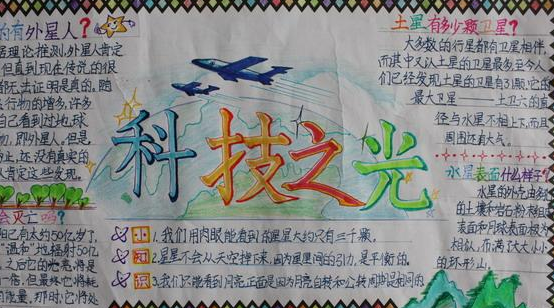 的有外星人？
理论推测,外星人肯定
但直到现在传说的很
都无法证明是真的。随
行物的增多,许多
自己看到过地球
物,即外星人。但是,
还没有真实的
人肯定这些发现。
会灭亡吗？
阳已有大约50亿岁了,
"温和"地辐射50亿
之后它的光亮将是
一倍,但最终它将耗
能量,那时,它将处
科技之光
小 1.我们用肉眼能看到的星星大约只有三千颗。
知 2.星星不会从天空掉下来,因为星星间的引力,是平衡的。
识 3.我们只能看到月亮正面是因为月亮自转和公转周期是相同的
土星有多少颗卫星？
大多数的行星都有卫星相伴,
而其中又以土星的卫星最多至今人
们已经发现土星的卫星有31颗,它的
最大卫星——土卫六的直
径与水星不相上下,而且
周围还有大气。
水星表面什么样子？
水星的外壳由多
的土壤和岩石粉
表面和月球表面极为
相似,布满了大大小小
的环形山。